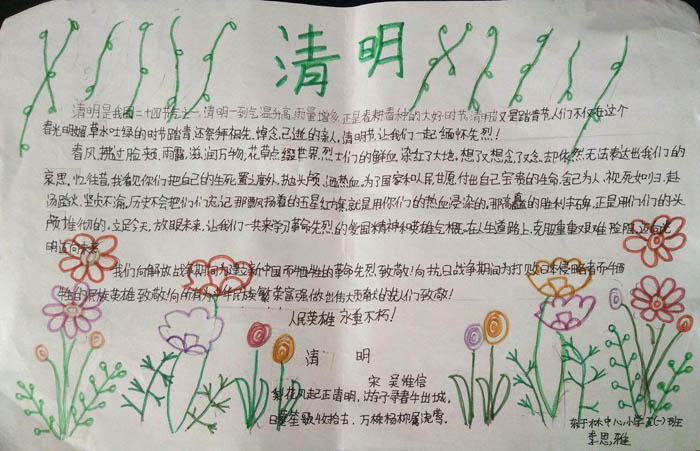 清明
清明是我国二十四节气之一,清明一到气温升高,雨量增多,正是春耕春种的大好时节,清明节又是踏青节,人们不仅在这个
春光明媚,草木吐绿的时节踏青,还祭拜祖先,悼念已逝的亲人,清明节,让我们一起缅怀先烈!
春风拂过脸颊,雨露滋润万物,花草点缀世界,烈士们的鲜血染红了大地,想了又想,念了又念,却依然无法表达出我们的
哀思,忆往昔,我看见你们把自己的生死置之度外,抛头颅,洒热血,为了国家和人民甘愿付出自己宝贵的生命,舍己为人,视死如归,赴
汤蹈火,坚贞不渝,历史不会把们们忘记,那飘扬着的五星红旗,就是用你们的热血浸染的,那高矗的胜利丰碑,正是用们们的头
颅堆彻的,立足今天,放眼未来,让我们一共来学习革命先烈的爱国精神和英雄气概,在人生道路上,克服重重艰难险阻,迈向光
明迈向未来
我们向解放战争期间为建立新中国不牺牲的革命先烈致敬!向抗日战争期间为打败日本侵略者而牺
牲的民族英雄致敬!向所有为中华民族繁荣富强做出伟大贡献的先人们致敬!
人民英雄 永垂不朽!
清 明
宋 吴惟信
梨花风起正清明,游子寻春半出城,
日暮笙歌收拾去,万株杨柳属流莺。
林中心小学五(一)班
李思雅